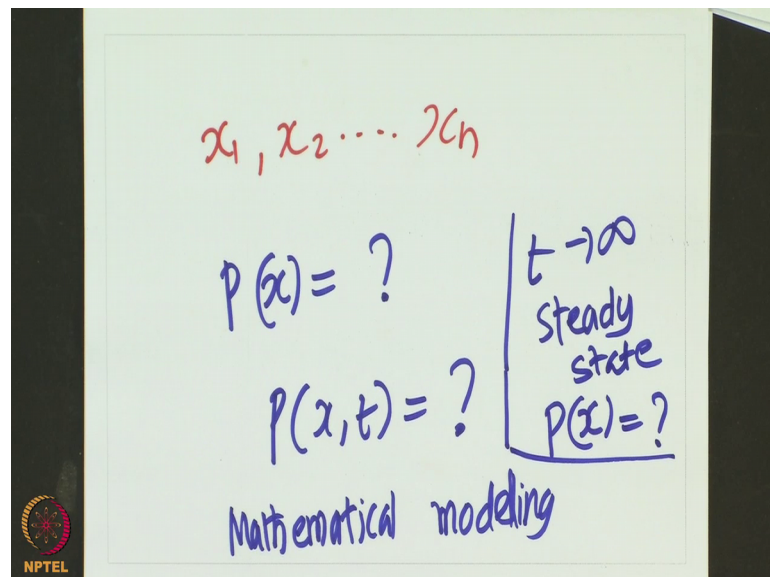 x₁, x₂ .... xₙ
P(x) = ?
P(x,t) = ?
t → ∞
steady
state
P(x) = ?
Mathematical modeling
NPTEL